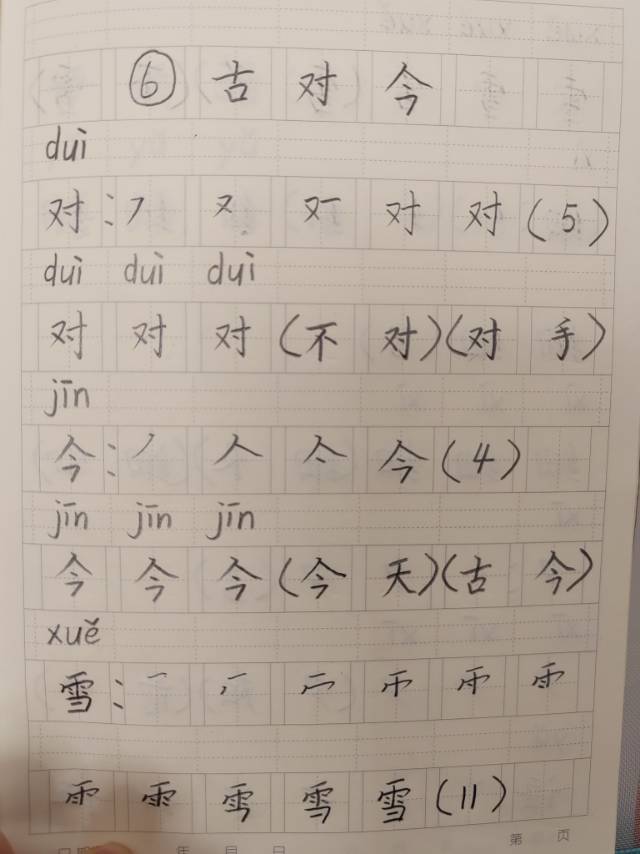 ⑥ 古 对 今
duì
对：㇇ 又 又一 对 对（5）
duì duì duì
对 对 对（不 对）（对 手）
jīn
今：丿 人 亼 今（4）
jīn jīn jīn
今 今 今（今 天）（古 今）
xuě
雪：
雪（11）
年 月 日 第 页